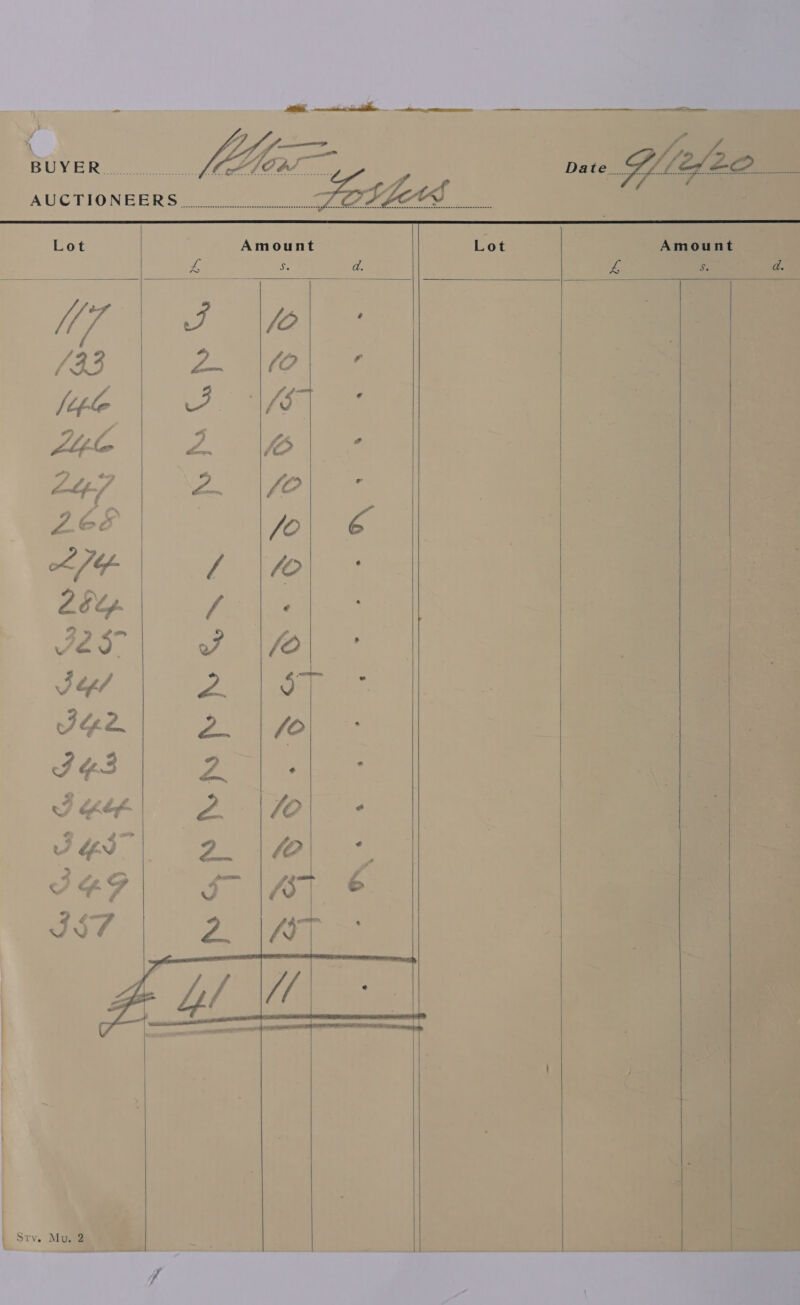 BUYER Date 9/12/20
AUCTIONEERS Fosters
Lot Amount Lot Amount
£ s. d. £ s. d.
117 3 10 •
133 2 10 •
146 3 15 •
246 2 10 •
247 2 10 •
268 10 6
274 1 10 •
284 1 • •
325 3 10 •
341 2 5 •
342 2 10 •
343 2 • •
344 2 10 •
345 2 10 •
349 5 15 6
357 2 15 •
£ 41 11 •
Srv. Mu. 2